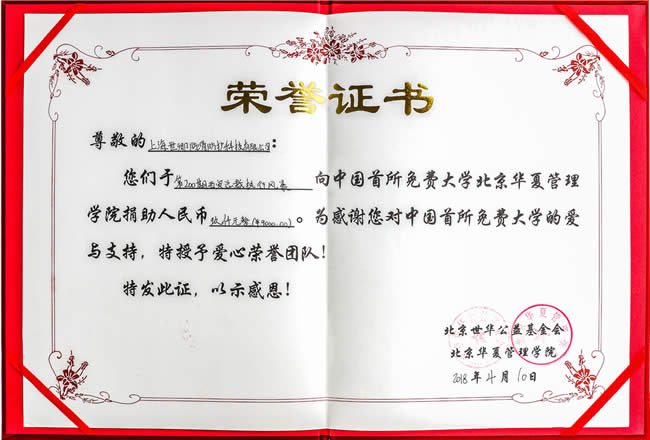 荣誉证书
尊敬的上海 科技有限公司：
您们于第200期 教授 向中国首所免费大学北京华夏管理
学院捐助人民币 元整（¥9000.00）。为感谢您对中国首所免费大学的爱
与支持，特授予爱心荣誉团队！
特发此证，以示感恩！
北京世华公益基金会
北京华夏管理学院
2018年4月10日